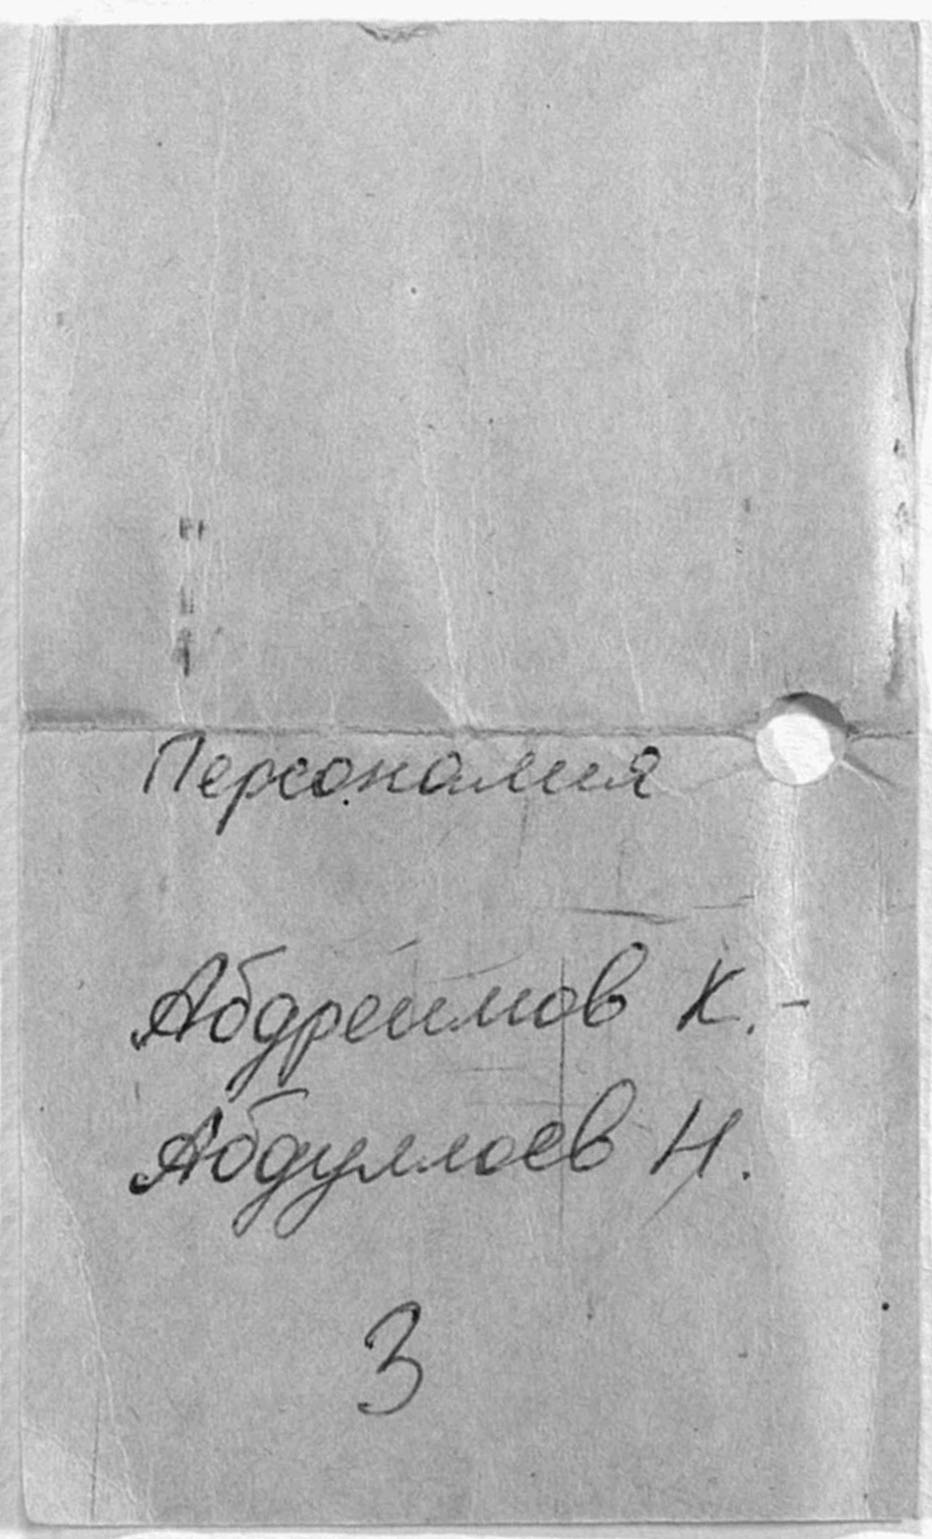 Персоналия
Абдреимов К.-
Абдуллоев Н.
3